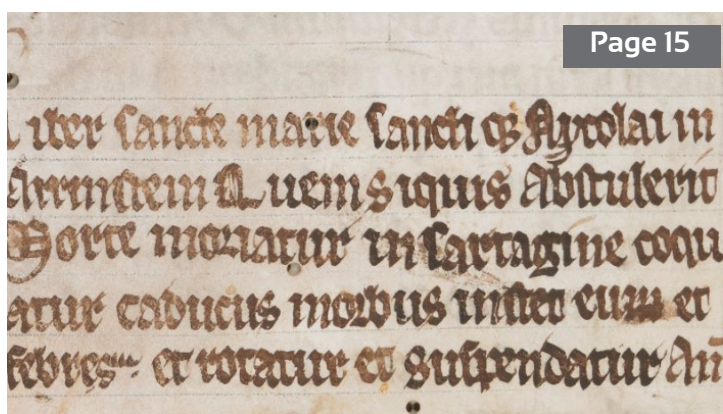 Page 15
iber sancte marie sancti qȝ Nycolai in
Arrinstein Quem siquis abstulerit
Morte moriatur in sartagine coqu
atur caducus morbus instet eum et
febres et rotatur et suspendatur Am